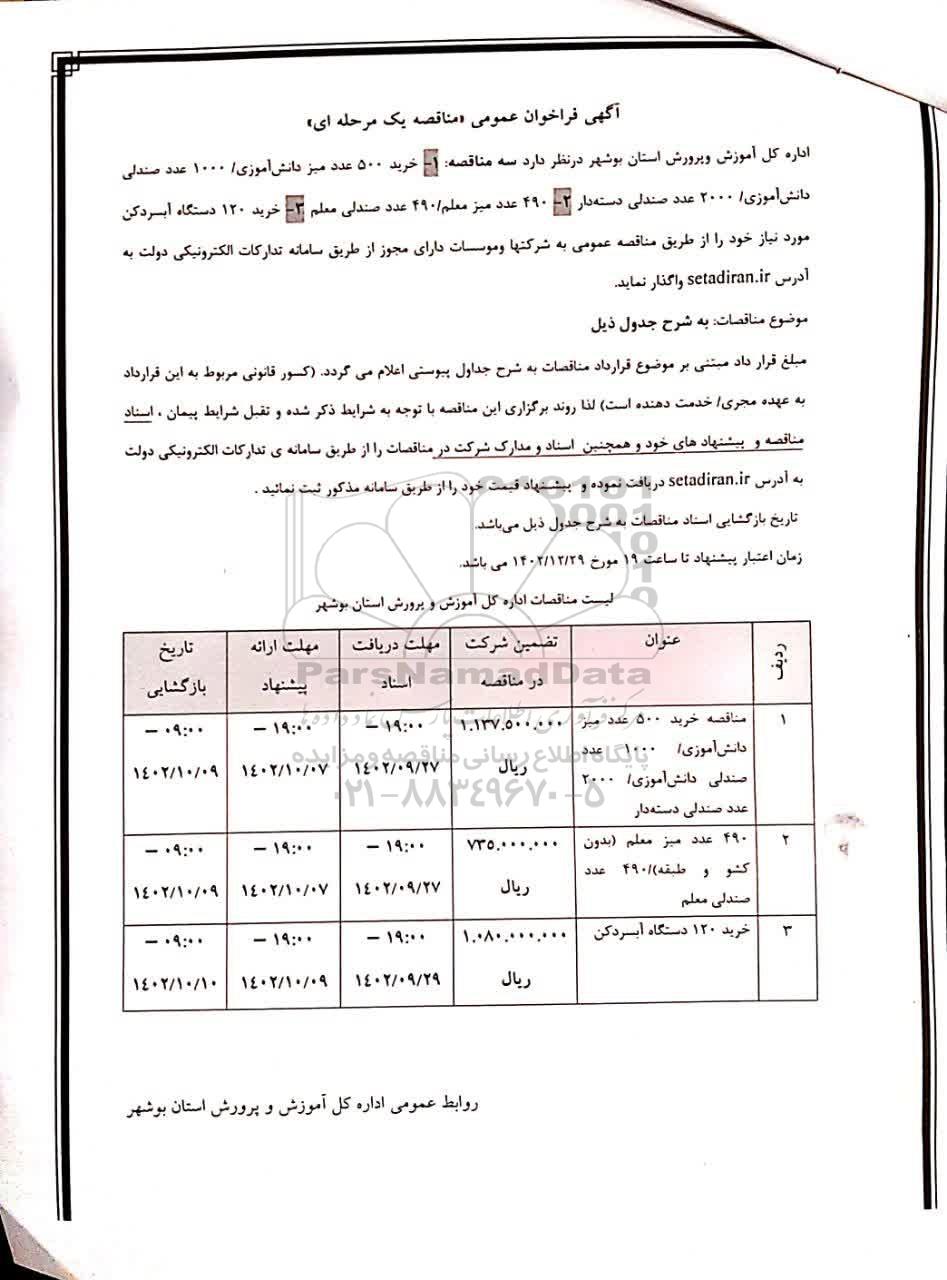 آگهی فراخوان عمومی «مناقصه یک مرحله ای»
اداره کل آموزش وپرورش استان بوشهر درنظر دارد سه مناقصه: ۱- خرید ۵۰۰ عدد میز دانش‌آموزی/ ۱۰۰۰ عدد صندلی
دانش‌آموزی/ ۲۰۰۰ عدد صندلی دسته‌دار ۲- ۴۹۰ عدد میز معلم/۴۹۰ عدد صندلی معلم ۳- خرید ۱۲۰ دستگاه آبسردکن
مورد نیاز خود را از طریق مناقصه عمومی به شرکتها وموسسات دارای مجوز از طریق سامانه تدارکات الکترونیکی دولت به
آدرس setadiran.ir واگذار نماید.
موضوع مناقصات: به شرح جدول ذیل
مبلغ قرار داد مبتنی بر موضوع قرارداد مناقصات به شرح جداول پیوستی اعلام می گردد. (کسور قانونی مربوط به این قرارداد
به عهده مجری/ خدمت دهنده است) لذا روند برگزاری این مناقصه با توجه به شرایط ذکر شده و تقبل شرایط پیمان ، اسناد
مناقصه و پیشنهاد های خود و همچنین اسناد و مدارک شرکت در مناقصات را از طریق سامانه ی تدارکات الکترونیکی دولت
به آدرس setadiran.ir دریافت نموده و پیشنهاد قیمت خود را از طریق سامانه مذکور ثبت نمائید .
تاریخ بازگشایی اسناد مناقصات به شرح جدول ذیل می‌باشد.
زمان اعتبار پیشنهاد تا ساعت ۱۹ مورخ ۱۴۰۲/۱۲/۲۹ می باشد.
لیست مناقصات اداره کل آموزش و پرورش استان بوشهر
ردیف عنوان تضمین شرکت در مناقصه مهلت دریافت اسناد مهلت ارائه پیشنهاد تاریخ بازگشایی
۱ مناقصه خرید ۵۰۰ عدد میز ۱.۱۳۷.۵۰۰.۰۰۰ ۱۹:۰۰ – ۱۹:۰۰ – ۰۹:۰۰ –
دانش‌آموزی/ ۱۰۰۰ عدد ریال ۱۴۰۲/۰۹/۲۷ ۱۴۰۲/۱۰/۰۷ ۱۴۰۲/۱۰/۰۹
صندلی دانش‌آموزی/ ۲۰۰۰
عدد صندلی دسته‌دار
۲ ۴۹۰ عدد میز معلم (بدون ۷۳۵.۰۰۰.۰۰۰ ۱۹:۰۰ – ۱۹:۰۰ – ۰۹:۰۰ –
کشو و طبقه)/۴۹۰ عدد ریال ۱۴۰۲/۰۹/۲۷ ۱۴۰۲/۱۰/۰۷ ۱۴۰۲/۱۰/۰۹
صندلی معلم
۳ خرید ۱۲۰ دستگاه آبسردکن ۱.۰۸۰.۰۰۰.۰۰۰ ۱۹:۰۰ – ۱۹:۰۰ – ۰۹:۰۰ –
ریال ۱۴۰۲/۰۹/۲۹ ۱۴۰۲/۱۰/۰۹ ۱۴۰۲/۱۰/۱۰
ParsNamadData
پایگاه اطلاع رسانی مناقصه و مزایده
۰۲۱-۸۸۳۴۹۶۷۰-۵
روابط عمومی اداره کل آموزش و پرورش استان بوشهر